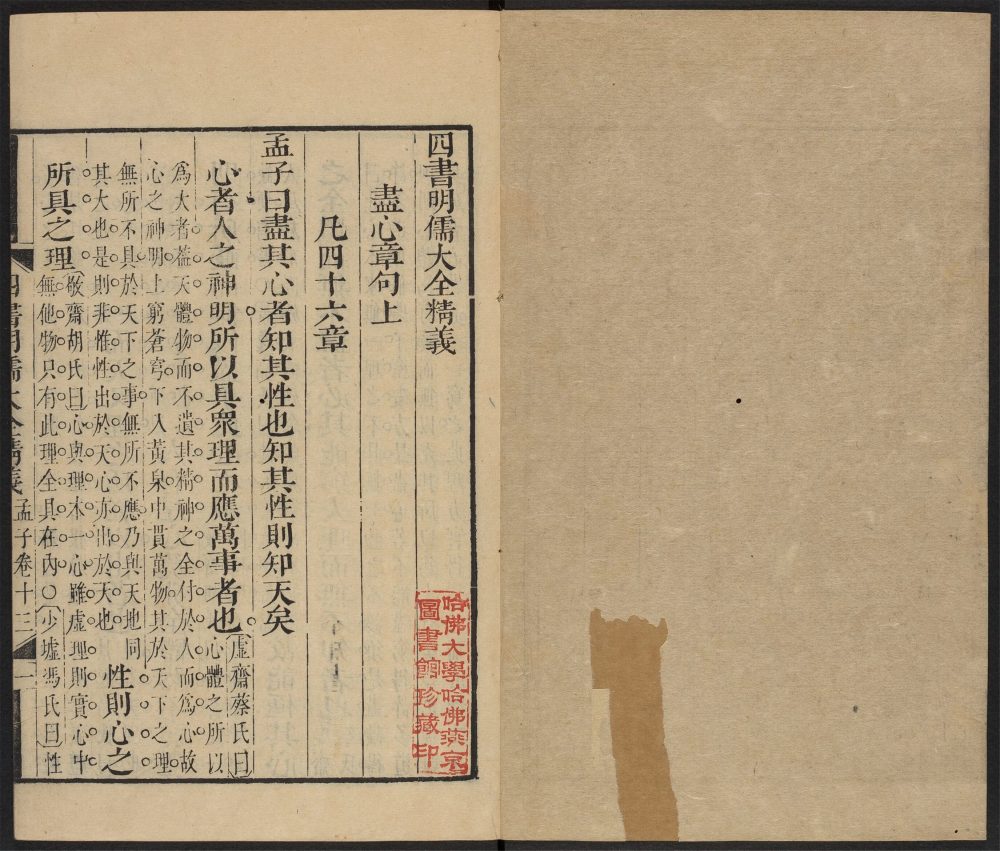 四書明儒大全精義
盡心章句上
凡四十六章
孟子曰盡其心者知其性也知其性則知天矣
心者人之神明所以具衆理而應萬事者也
虛齋蔡氏曰
心體之所以
爲大者葢天體物而不遺其精神之全付於人而爲心故
心之神明上窮蒼穹下入黃泉中貫萬物其於天下之理
無所不具於天下之事無所不應乃與天地同
其大也是則非惟性出於天心亦出於天也
性則心之
所具之理
敬齋胡氏曰心與理本一心雖虛理則實心中
無他物只有此理全具在內○少墟馮氏曰性
四書明儒大全精義 孟子卷十三 一
哈佛大學哈佛燕京
圖書館珍藏印